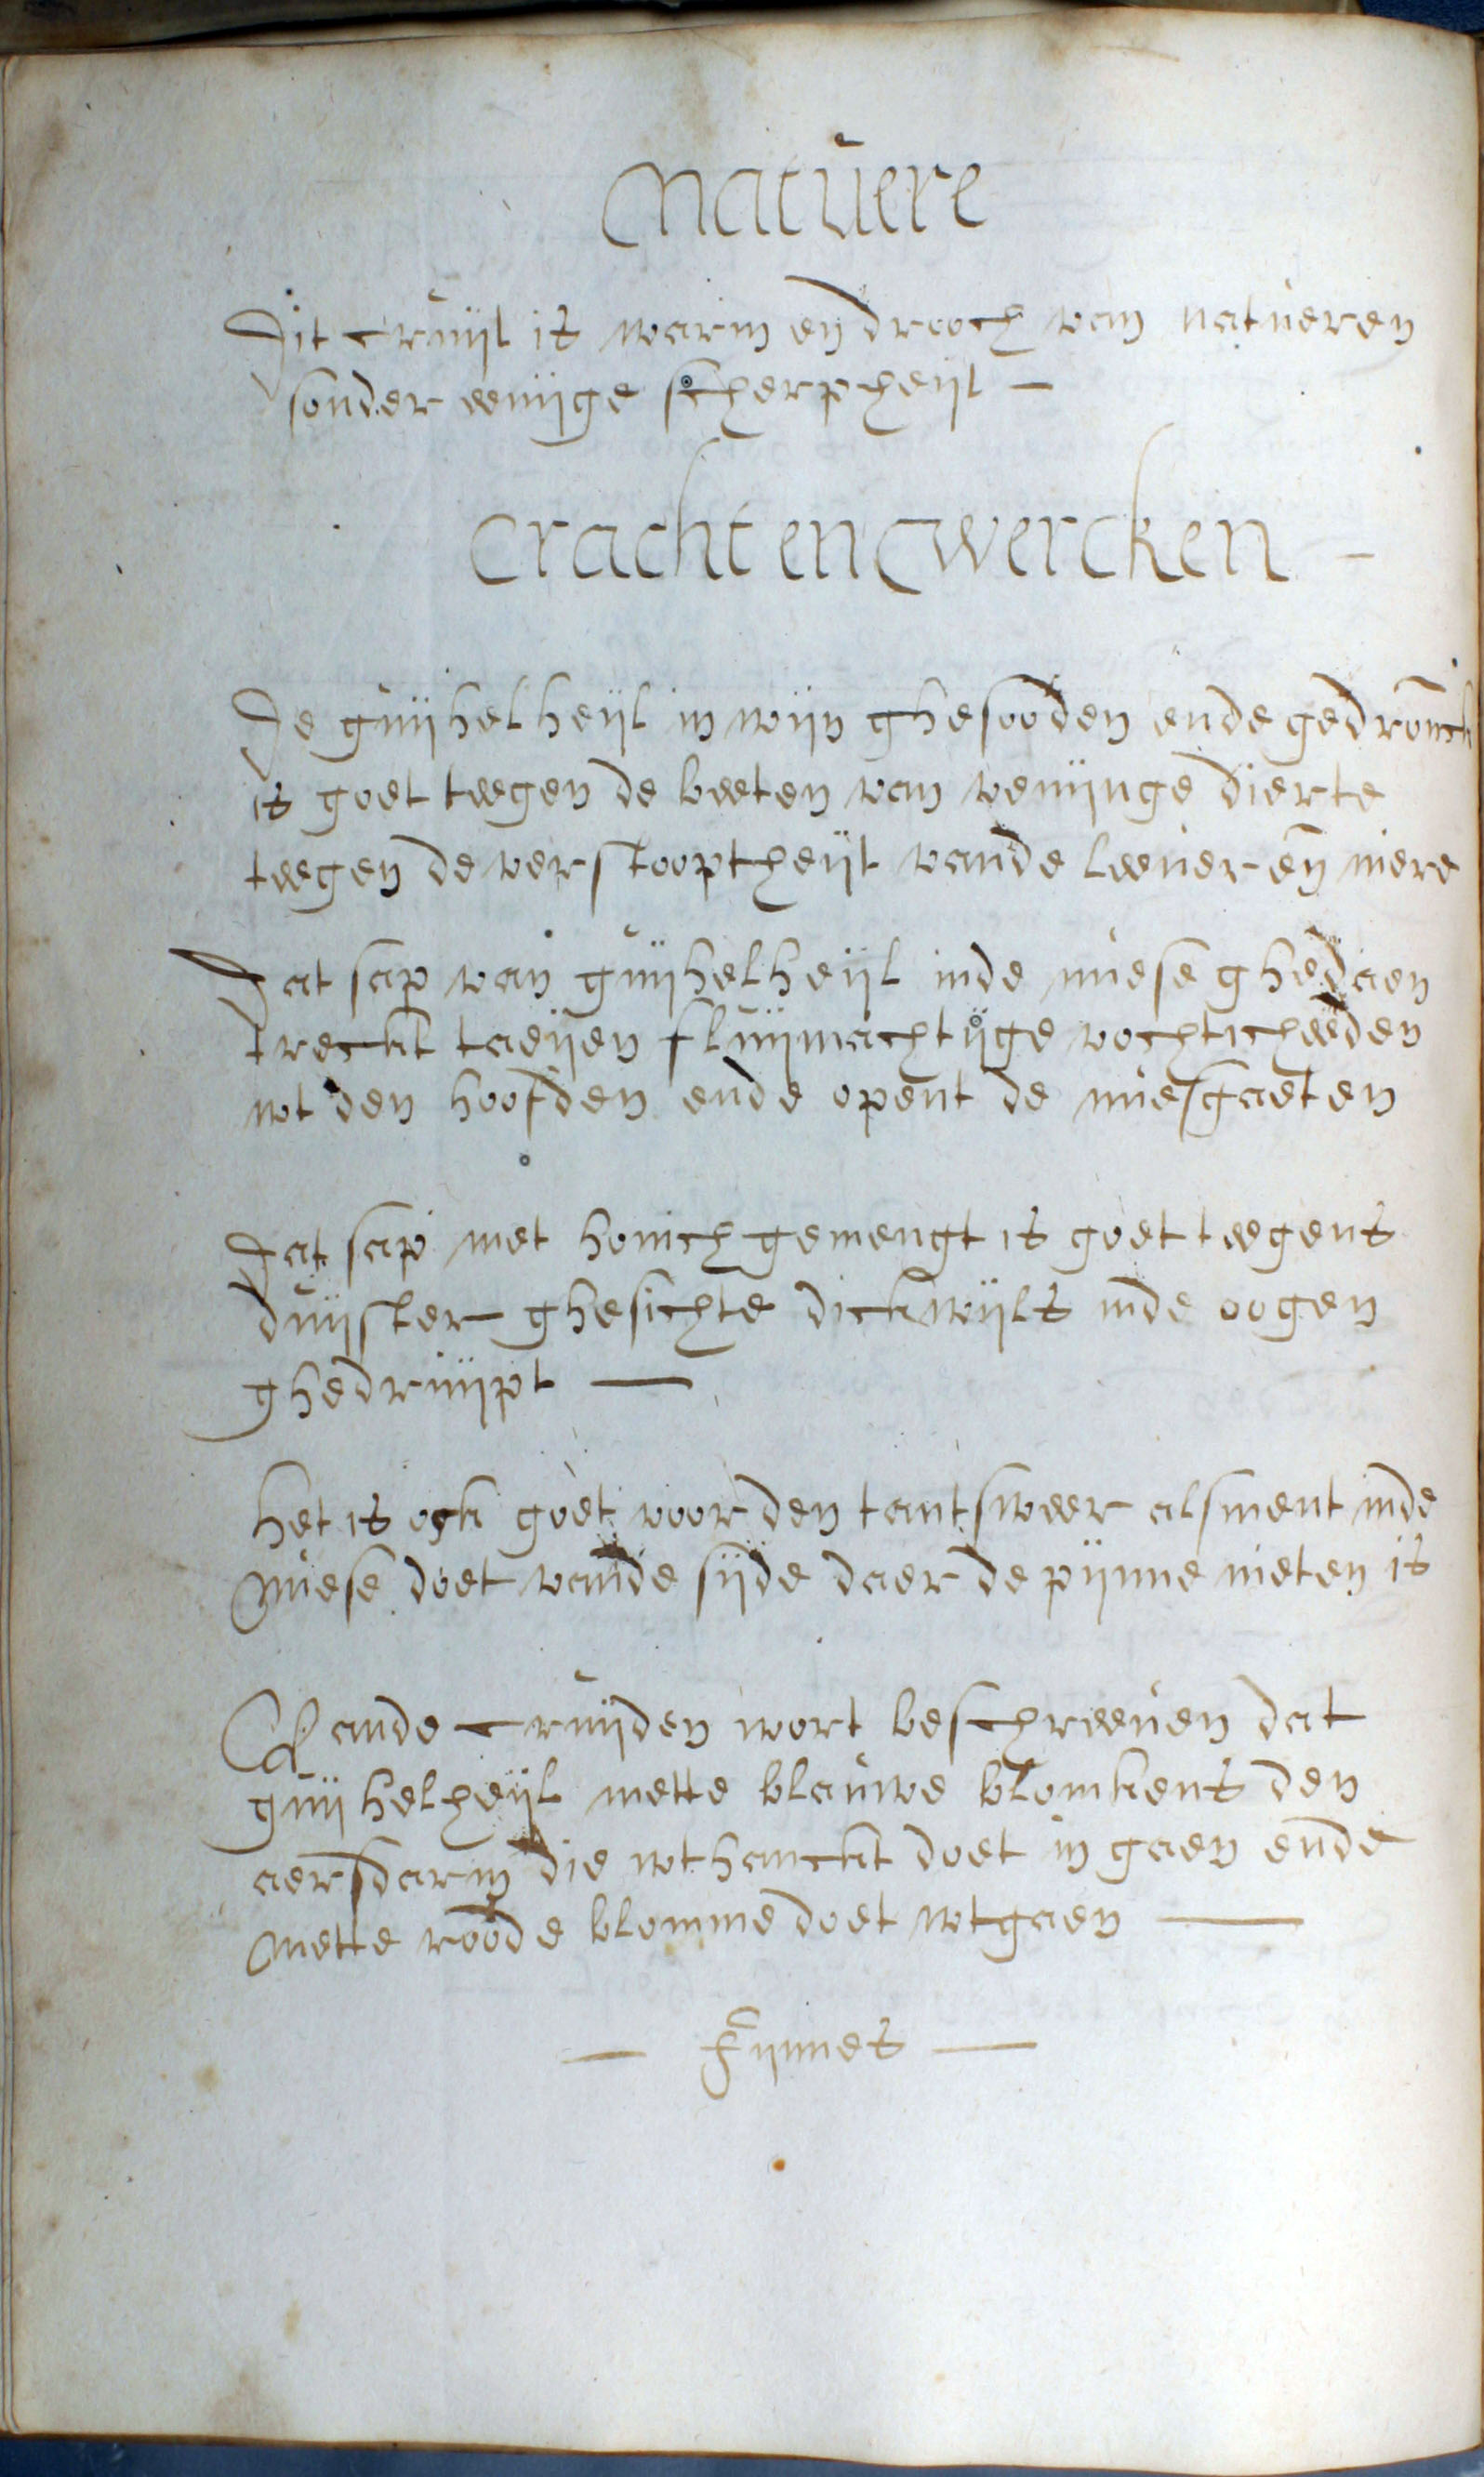 Natuere
Dit cruijt is warm en drooch van natueren
sonder eenijge scherpheijt —
Cracht en wercken —
De guijchelheijl in wijn ghesooden ende gedronck
is goet teegen de beeten van venijnge dierte
teegen de verstooptheijt vande leever en niere
Dat sap van guijchelheijl inde nuese ghedaen
treckt taeijen fluijmachtijge vochticheeden
wt den hoofden ende opent de nuesgaeten
Dat sap met honich gemengt is goet teegens
duijster ghesichte dickwijls inde oogen
ghedruijpt —
Het is ock goet voor den tantsweer alsment inde
Nuese doet vande sijde daer de pijnne nieten is
Vande cruijden wort beschreeven dat
guijchelheijl mette blauwe blomkens den
aersdarm die wthanckt doet in gaen ende
Mette roode blomme doet wtgaen —
— Fijnnes —